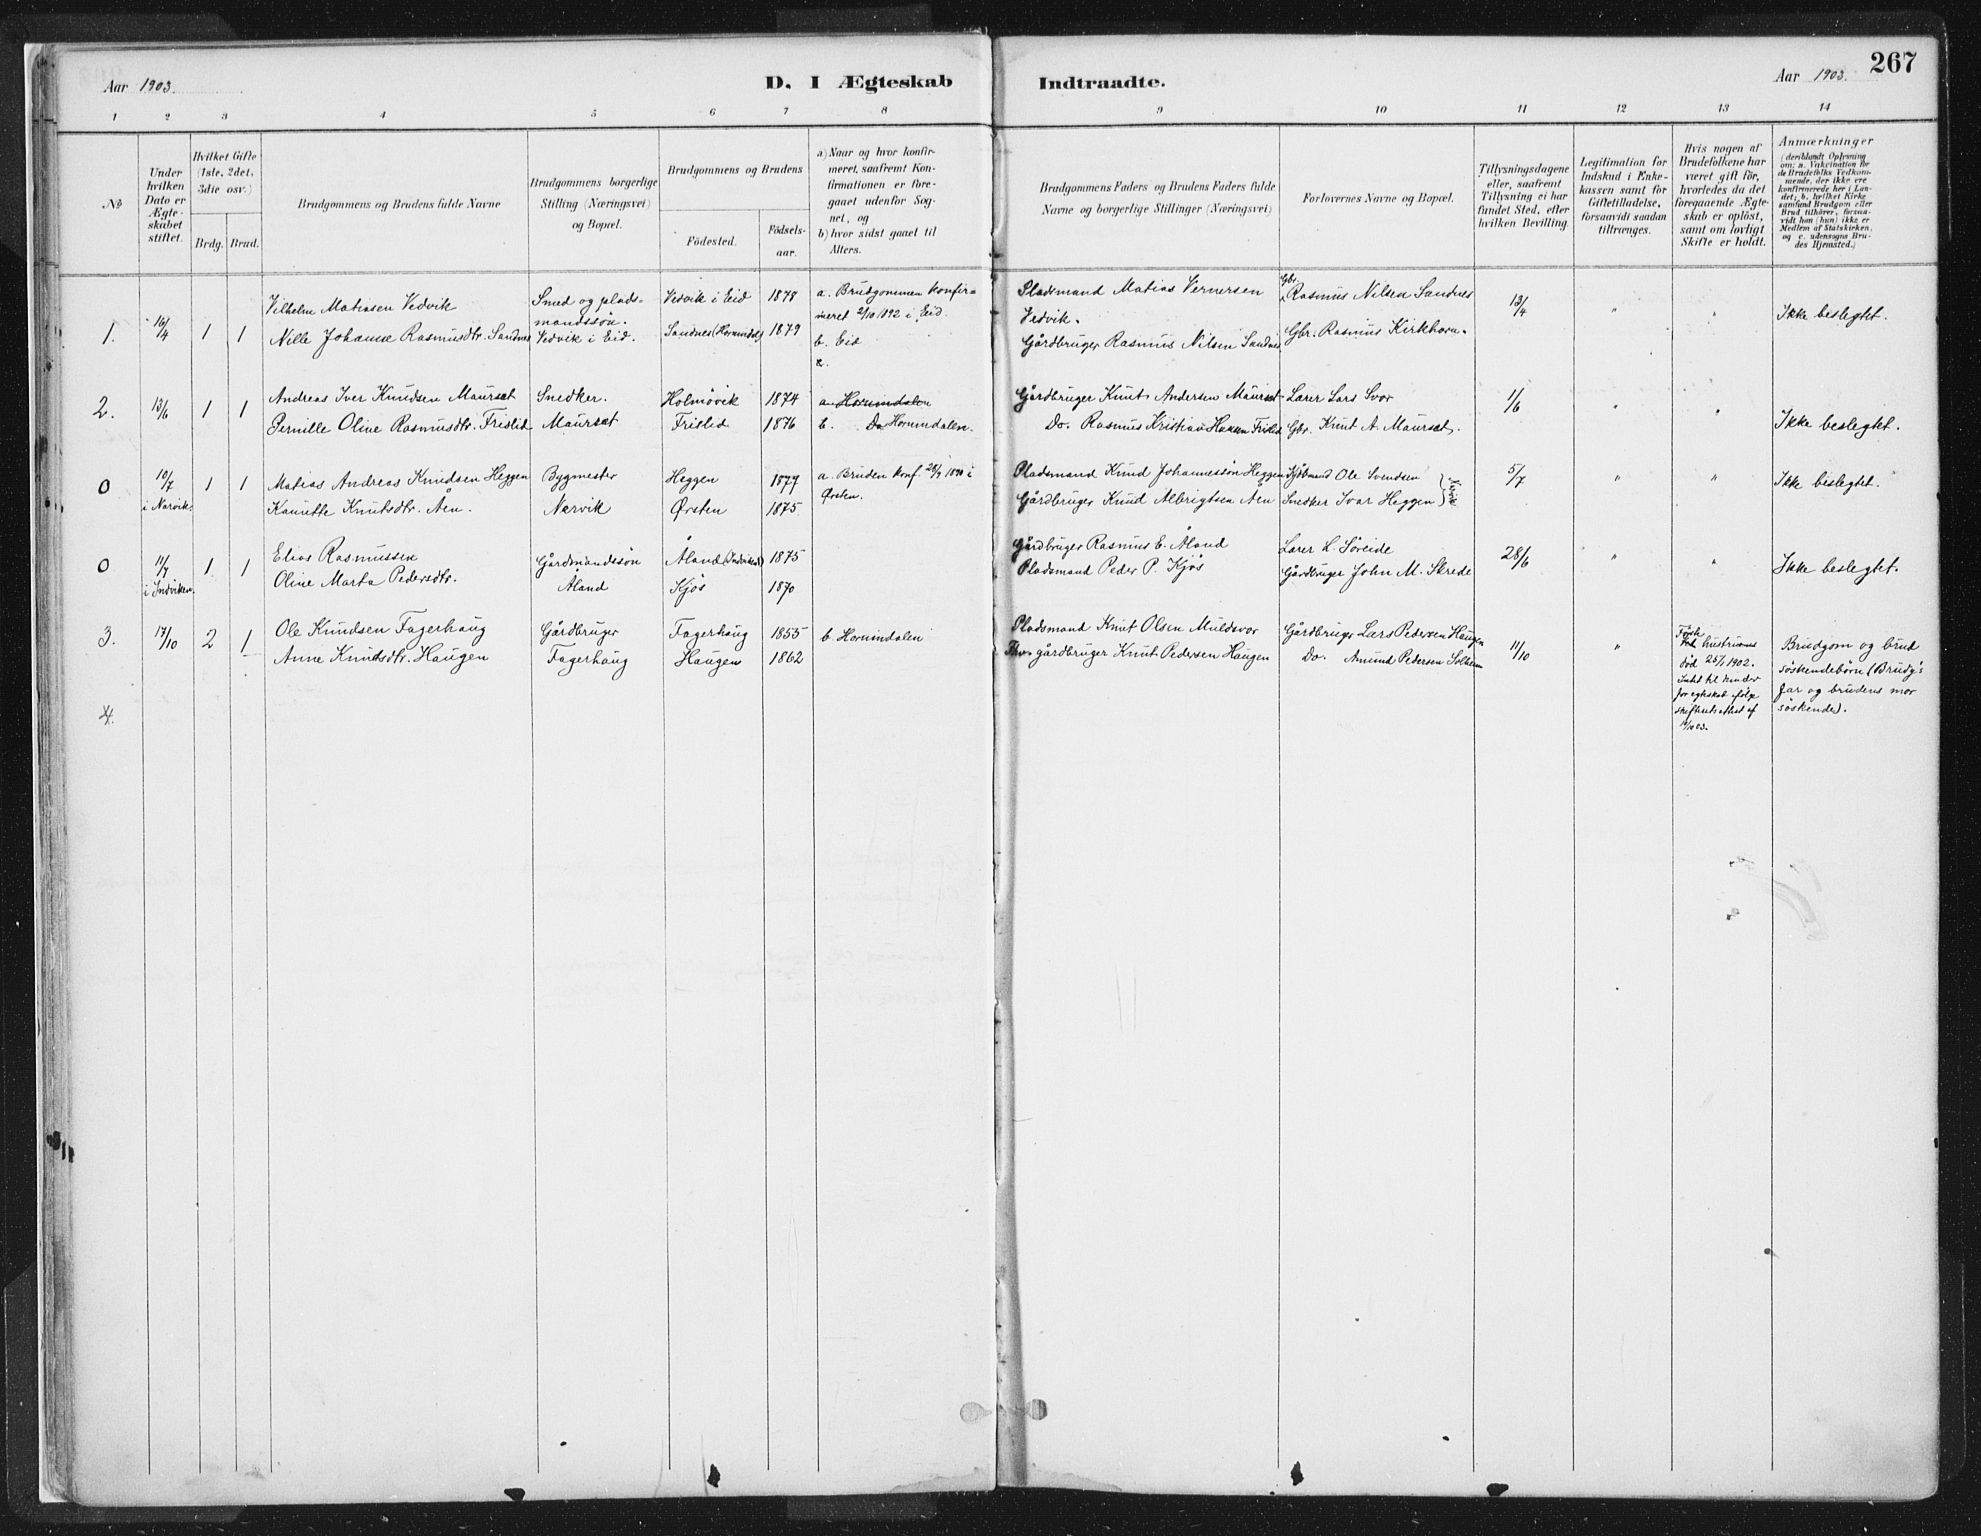 Aar 1903.
D. I Ægteskab
Indtraadte.
Aar 1903.
267
1 2 3 4 5 6 7 8 9 10 11 12 13 14
No
Under hvilken Dato er Ægteskabet stiftet.
Hvilket Gifte (1ste, 2det, 3die osv.)
Brdg. Brud.
Brudgommens og Brudens fulde Navne
Brudgommens borgerlige Stilling (Næringsvei) og Bopæl.
Brudgommens og Brudens
Födested.
Födselsaar.
a) Naar og hvor konfirmeret, saafremt Konfirmationen er foregaaet udenfor Sognet, og
b) hvor sidst gaaet til Alters.
Brudgommens Faders og Brudens Faders fulde Navne og borgerlige Stillinger (Næringsvei)
Forlovernes Navne og Bopæl.
Tillysningsdagene eller, saafremt Tillysning ei har fundet Sted, efter hvilken Bevilling.
Legitimation for Indskud i Enkekassen samt for Giftetilladelse, forsaavidt saadan tiltrænges.
Hvis nogen af Brudefolkene har været gift för, hvorledes da det foregaaende Ægteskab er oplöst, samt om lovligt Skifte er holdt.
Anmærkninger
(deriblandt Oplysning om; a. Vakcination for de Brudefolks Vedkommende, der ikke ere konfirmerede her i Landet; b. hvilket Kirkesamfund Brudgom eller Brud tilhörer, forsaavidt han (hun) ikke er Medlem af Statskirken, og c. udensogns Brudes Hjemsted.)
1. 16/4 1 1
Vilhelm Matiasen Vedvik
Nille Johanne Rasmusdtr. Sandnes
Smed og pladsmandssön.
Vedvik i Eid.
Vedvik i Eid 1878
Sandnes (Hornindal) 1879
a. Brudgommen konfirmeret 2/10 1892 i Eid.
b. Eid
Pladsmand Matias Vernersen Vedvik.
Gårdbruger Rasmus Nilsen Sandnes.
Gbr. Rasmus Nilsen Sandnes
Gbr. Rasmus Kirkhorn.
13/4 " "
Ikke beslegtet.
2. 13/6 1 1
Andreas Iver Knudsen Maurset
Pernille Oline Rasmusdtr. Frislid
Snedker.
Maurset
Holmövik 1874
Frislid 1876
a. Hornindalen
b. Do Hornindalen.
Gårdbruger Knut Andersen Maurset
Do. Rasmus Kristian Hansen Frislid
Lærer Lars Svor
Gbr. Knut A. Maurset.
1/6 " "
Ikke beslegtet.
0 10/7 i Narvik. 1 1
Matias Andreas Knudsen Heggen
Kanutte Knutsdtr. Åen.
Bygmester
Narvik
Heggen 1877
Ørsten 1875
a. Bruden konf. 28/9 1890 i Ørsten.
Pladsmand Knud Johannessön Heggen
Gårdbruger Knud Albrigtsen Åen
Kjöbmand Ole Svendsen
Snedker Ivar Heggen } Narvik
5/7 " "
Ikke beslegtet.
0 11/7 i Indviken. 1 1
Elias Rasmussen
Oline Marta Pedersdtr.
Gårdmandssön
Åland
Åland (Indviken) 1875
Kjös 1870
Gårdbruger Rasmus E. Åland
Pladsmand Peder P. Kjös
Lærer L. Søreide
Gårdbruger John M. Skrede
28/6 " "
Ikke beslegtet.
3. 17/10 2 1
Ole Knudsen Fagerhaug
Anne Knudsdtr. Haugen
Gårdbruger
Fagerhaug
Fagerhaug 1855
Haugen 1862
b. Hornindalen
Pladsmand Knut Olsen Muldsvor
gårdbruger Knut Pedersen Haugen
Gårdbruger Lars Pedersen Haugen
Do. Amund Pedersen Solheim
11/10 "
Första hustrues död 25/1 1902.
Brudgom og brud söskendebörn (Brudg's far og brudens mor söskende).
4.